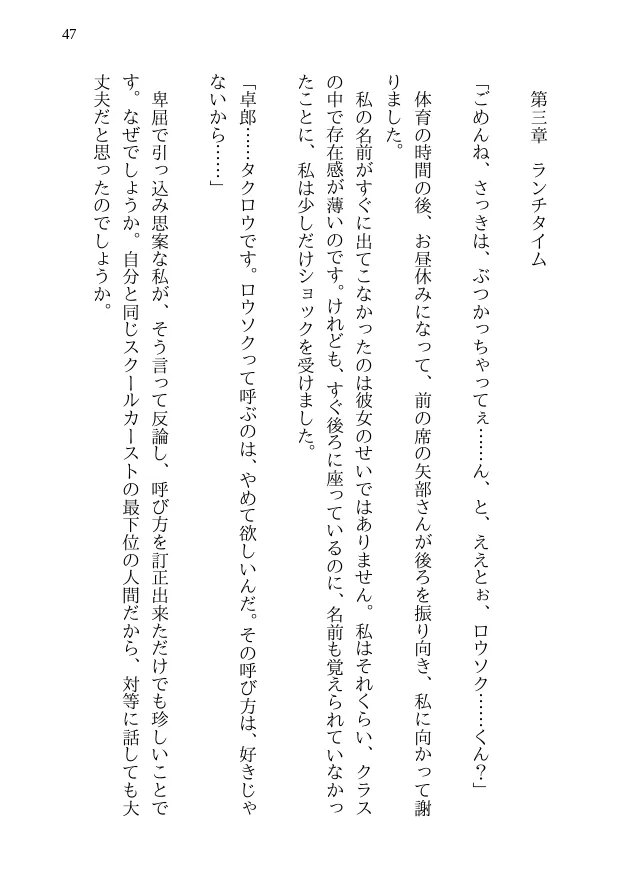 47
第三章　ランチタイム
「ごめんね、さっきは、ぶつかっちゃってぇ……ん、と、ええとぉ、ロウソク……くん？」
　体育の時間の後、お昼休みになって、前の席の矢部さんが後ろを振り向き、私に向かって謝
りました。
　私の名前がすぐに出てこなかったのは彼女のせいではありません。私はそれくらい、クラス
の中で存在感が薄いのです。けれども、すぐ後ろに座っているのに、名前も覚えられていなかっ
たことに、私は少しだけショックを受けました。
「卓郎……タクロウです。ロウソクって呼ぶのは、やめて欲しいんだ。その呼び方は、好きじゃ
ないから……」
　卑屈で引っ込み思案な私が、そう言って反論し、呼び方を訂正出来ただけでも珍しいことで
す。なぜでしょうか。自分と同じスクールカーストの最下位の人間だから、対等に話しても大
丈夫だと思ったのでしょうか。